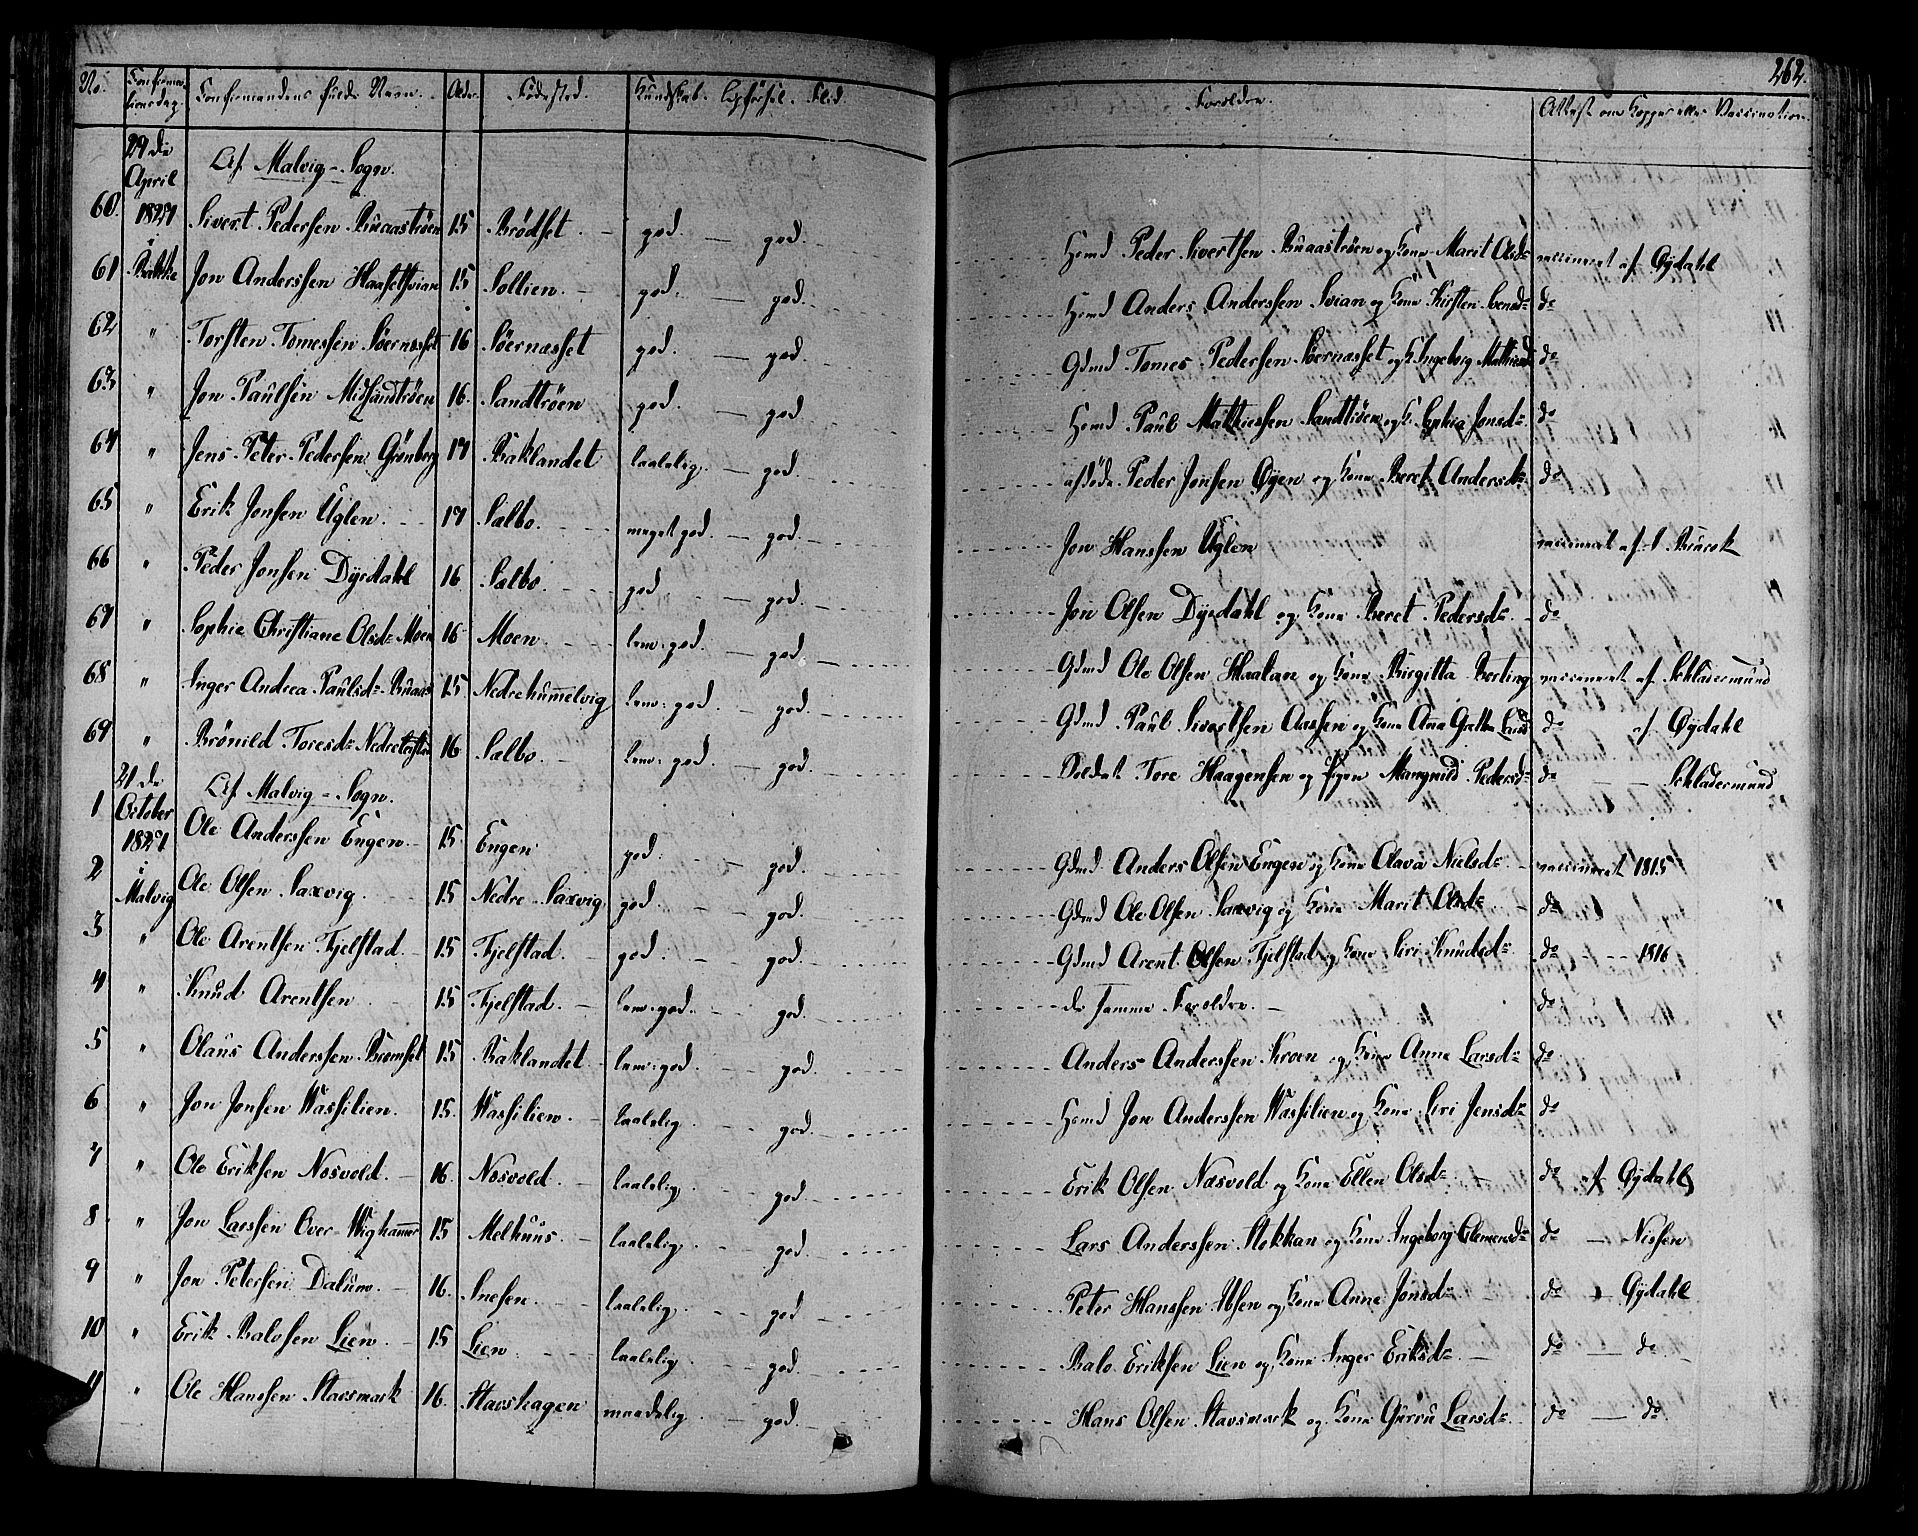 262.
No. Confirmationsdag. Confirmandens fulde Navn. Alder Fødested. Kundskab. Opførsel. Flid. Forældre. Attest om Kopper eller Vaccination.
29de April 1827 i Bakke
Af Malvig-Sogn.
60. Sivert Pedersen Buaastrøen 15 Brødset god. god. Hsmd Peder Sivertsen Buaastrøen og Kone Marit Olsdr vaccineret af Øydahl
61 Jon Anderssen 15 Sollien. god. god. Hsmd Anders Anderssen Svian og Kone Kirsten do
62 " Torsten Tomessen Søernasset 16 Søernasset god. god. Gdmd Tomes Pedersen Søernasset og K. Ingebrig do
63 " Jon Paulsen Midsandtrøen 16. Sandtrøen god. god. Hsmd Paul Mathiessen Sandtrøen og K. Sophia Jonsdr. do
64 " Jens Peter Pedersen Grønberg 17 Baklandet taalelig. god. afdøde Peder Jonsen Øyen og Kone Beret Andersdr. do
65 " Erik Jonsen Uglen. 17 Sælbo. meget god. god. Jon Hanssen Uglen vaccineret af
66 " Peder Jonsen Dyrdahl 16 Sælbo god god. Jon Olsen Dyrdahl og Kone Beret Pedersdr. do
67 " Sophie Christiane Olsdr Moen 16 Moen tem: god. god. Gdmd Ole Olsen Haalan og Kone Birgitta Berling vaccineret af Schladermund
68 " Inger Andrea Paulsdr Buaas 15 Nedrehummelvig tem: god. god. Gdmd Paul Sivertsen Aassen og Kone Anna Gretha do af Øydahl
69 " Brønild Toresdr 16 Sælbo. tem: god. god. Soldat Tore Haagensen og Pigen Mangnild Pedersdr do Schladermund
21de October 1827 i Malvig
Af Malvig-Sogn.
1 Ole Anderssen Engen 15 Engen god. god. Gdmd Anders Olsen Engen og Kone Olava Nielsdr vaccineret 1815
2 Ole Olsen Saxvig. 15 Nedre Saxvig god. god. Gdmd Ole Olsen Saxvig og Kone Marit Olsdr do
3 " Ole Arentsen Fjelstad. 15 Fjelstad. god. god. Gdmd Arent Olsen Fjelstad og Kone Siri Knudsdr do 1816
4 " Knud Arentsen 15 Fjelstad. tem: god. god. de samme Forældre. do
5 " Olaus Anderssen 15 Baklandet tem: god. god. Anders Anderssen Kroen og Kone Anne Larsdr do
6 " Jon Jonsen Wassilien. 15. Wassilien. taalelig. god. Hsmd Jon Anderssen Wassilien og Kone Siri Jensdr do
7 " Ole Eriksen Næsvold. 16. Næsvold. taalelig. god. Erik Olsen Næsvold og Kone Ellen Olsdr do af Øydahl
8 " Jon Larssen Over-Wighammer 15 Melhuus taalelig. god. Lars Anderssen Stokkan og Kone Ingeborg Clemensdr do Nissen
9 " Jon Petersen Dalum. 16. Snesen. taalelig. god Peter Hanssen Ibsen og Kone Anne Jonsdr do Øydahl
10 " Erik Balosen Lien. 15 Lien. taalelig. god. Balo Eriksen Lien og Kone Inger Eriksdr do do
11 " Ole Hanssen Stavsmark 16. Stavshagen maadelig. god. Hans Olsen Stavsmark og Kone Gurru Larsdr do do